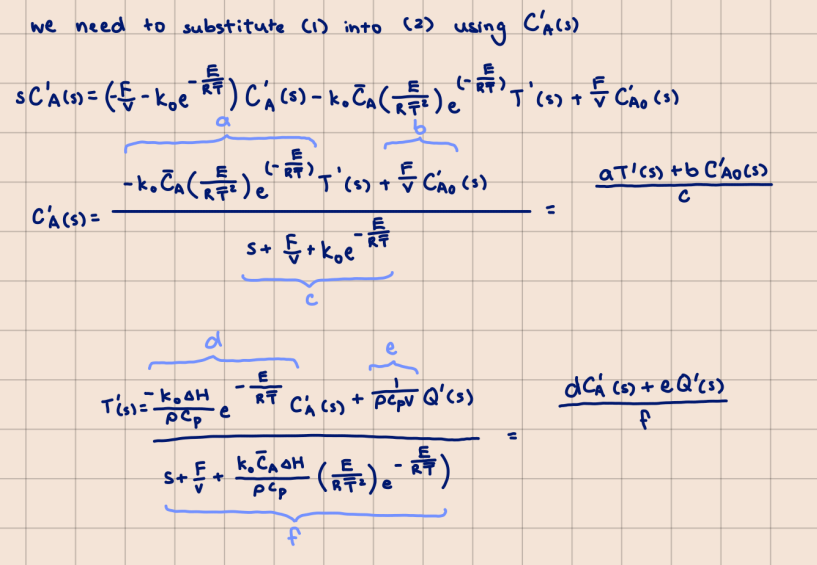 we need to substitute (1) into (2) using C'A(s)
sC'A(s) = (-F/V - k₀e^(-E/(RT̄))) C'A(s) - k₀C̄A(E/(RT̄²))e^(-E/(RT̄)) T'(s) + F/V C'A₀(s)
a b
C'A(s) = (-k₀C̄A(E/(RT̄²))e^(-E/(RT̄)) T'(s) + F/V C'A₀(s)) / (s + F/V + k₀e^(-E/(RT̄))) = (aT'(s) + bC'A₀(s)) / c
c
d e
T'(s) = (-k₀ΔH/(ρCp) e^(-E/(RT̄)) C'A(s) + 1/(ρCpV) Q'(s)) / (s + F/V + k₀C̄AΔH/(ρCp) (E/(RT̄²)e^(-E/(RT̄)))) = (dC'A(s) + eQ'(s)) / f
f